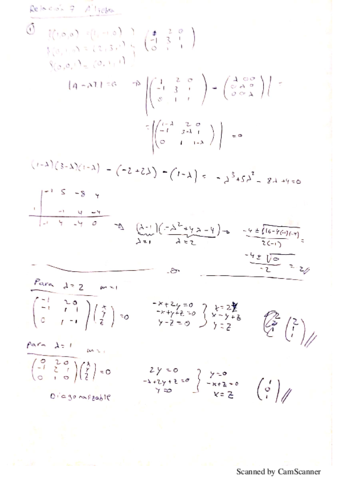 Relación 7
|A - λI| = 0 → |(1 2 0 / -1 3 1 / 0 1 1) - (λ 0 0 / 0 λ 0 / 0 0 λ)| =
= |(1-λ 2 0 / -1 3-λ 1 / 0 1 1-λ)| = 0
(1-λ)(3-λ)(1-λ) - (-2+2λ) - (1-λ) = -λ³+5λ²-8λ+4=0
-1 5 -8 4
1 -1 4 -4
-1 4 -4 0 → (λ-1)(-λ²+4λ-4) → -4±√16-4(-1)(-4) / 2(-1) =
λ=1 λ=2
-4±√0 / -2 = 2//
Para λ=2
(-1 2 0 / -1 1 1 / 0 1 -1)(x / y / z)=0 -x+2y=0 -x+y+z=0 y-z=0 } x=2y x=y+z y=z (2 / 1 / 1)//
Para λ=1
(0 2 0 / -1 2 1 / 0 1 0)(x / y / z)=0 2y=0 -x+2y+z=0 y=0 } y=0 -x+z=0 x=z (1 / 0 / 1)//
Diagonalizable
Scanned by CamScanner